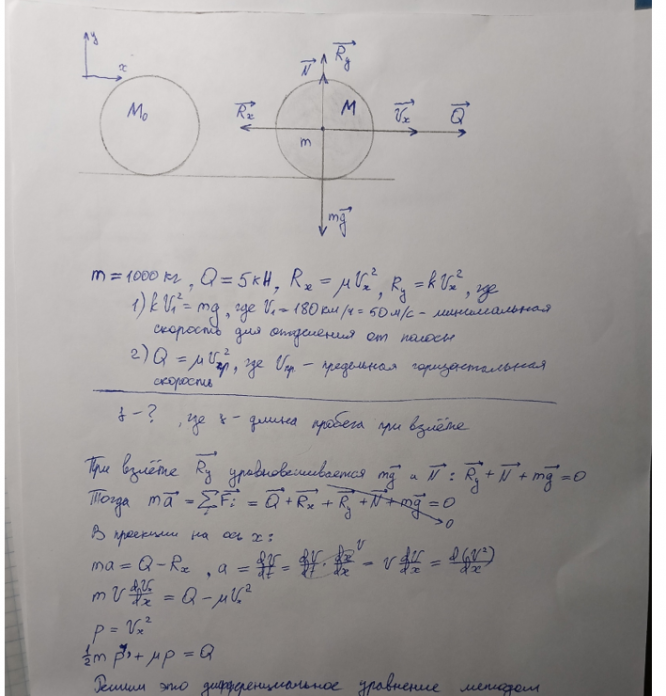 y
x
M₀
N R_y
R_x M V_x Q
m
mg
m = 1000 кг, Q = 5 кН, R_x = μV_x², R_y = kV_x², где
1) kV₁² = mg, где V₁ = 180 км/ч = 50 м/с - минимальная
скорость для отделения от полосы
2) Q = μV_пр², где V_пр - предельная горизонтальная
скорость
z - ?, где z - длина пробега при взлёте
При взлёте R_y уравновешивается mg и N: R_y + N + mg = 0
Тогда ma = ΣF_i = Q + R_x + R_y + N + mg = 0
0
В проекции на ось x:
ma = Q - R_x, a = dV/dt = dV/dt · dx/dx V = V dV/dx = d(V²)/dx
m V dV/dx = Q - μV²
p = V_x²
½ m p' + μp = Q
Решим это дифференциальное уравнение методом